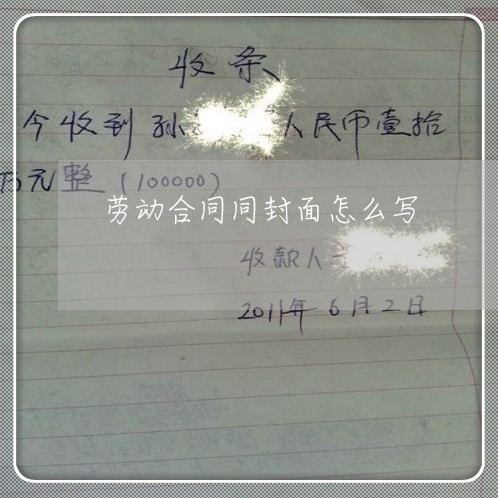 收条
今收到孙 人民币壹拾
万元整(100000)
劳动合同同封面怎么写
收款人
2011年6月2日